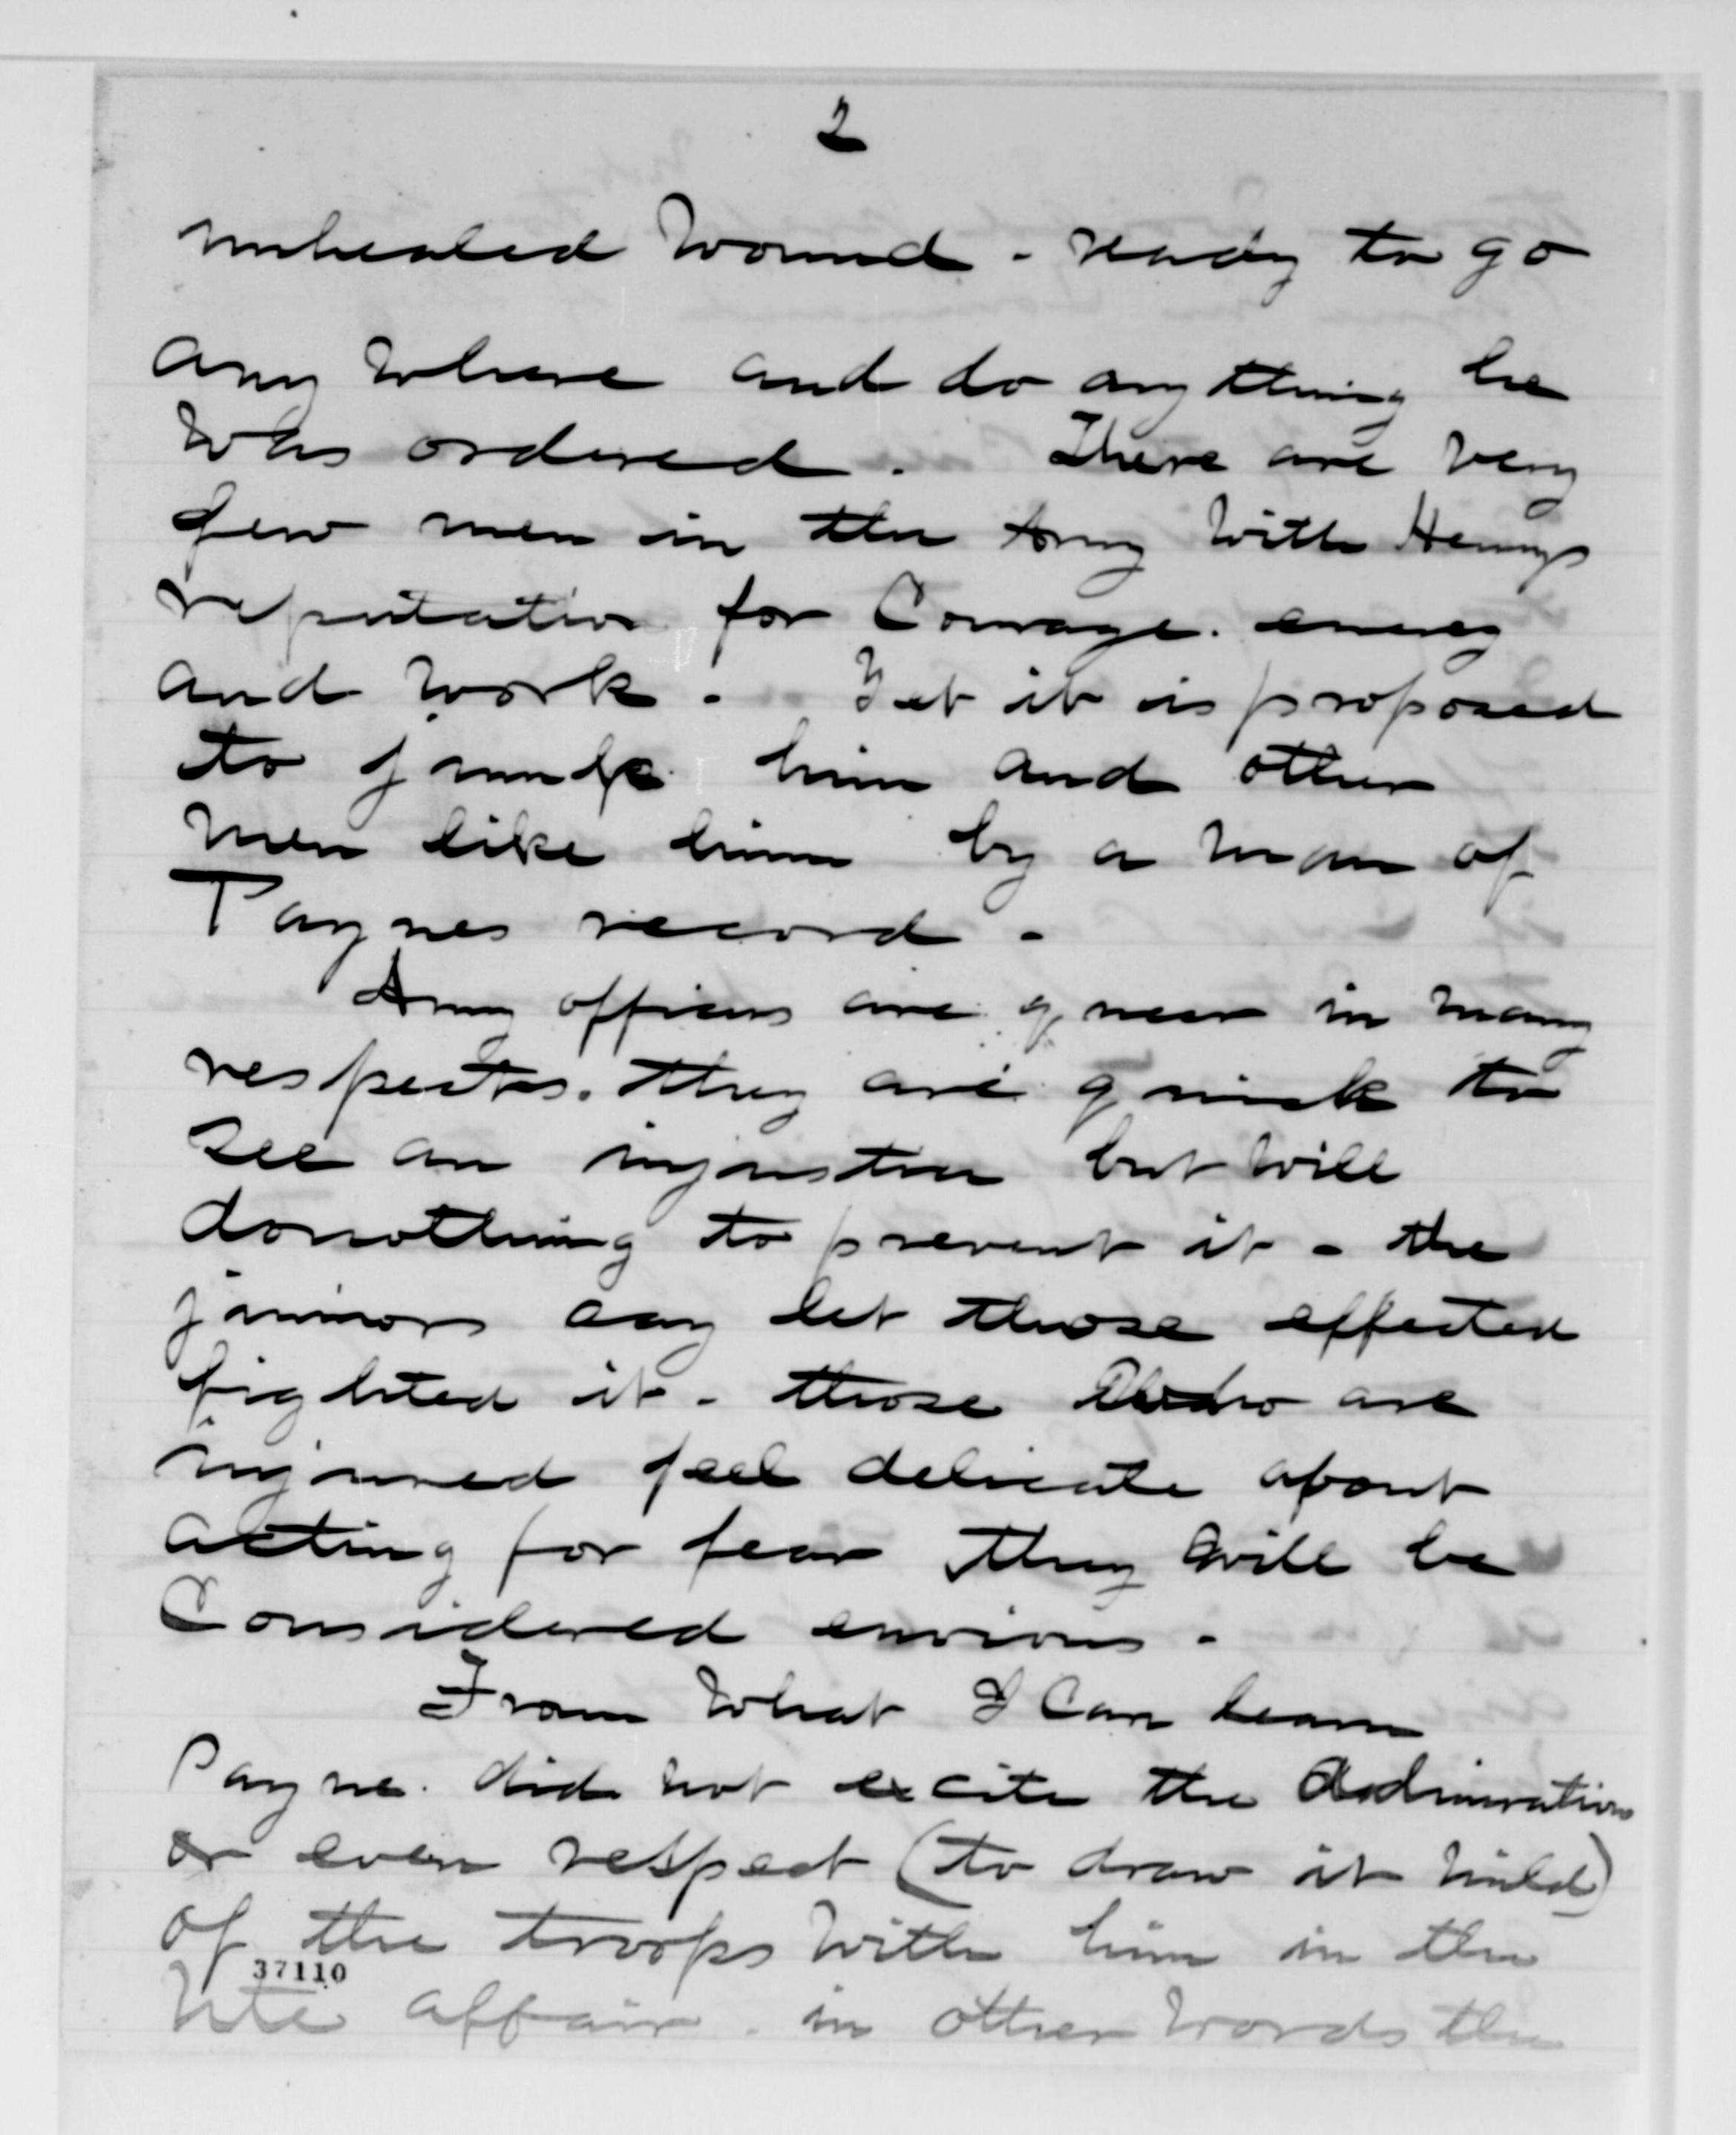 2
unhealed wound - ready to go
any where and do anything he
was ordered. There are very
few men in the Army with Henrys
reputation for Courage. energy
and work. Yet it is proposed
to jump him and other
men like him by a man of
Paynes record -
Army officers are queer in many
respects. they are quick to
see an injustice but will
do nothing to prevent it - the
juniors say let those effected
fighted it - those who are
injured feel delicate about
acting for fear they will be
Considered envious -
From what I can learn
Payne. did not excite the Admiration
or even respect (to draw it mild)
of the troops with him in the
37110
Ute affair. in other words, the